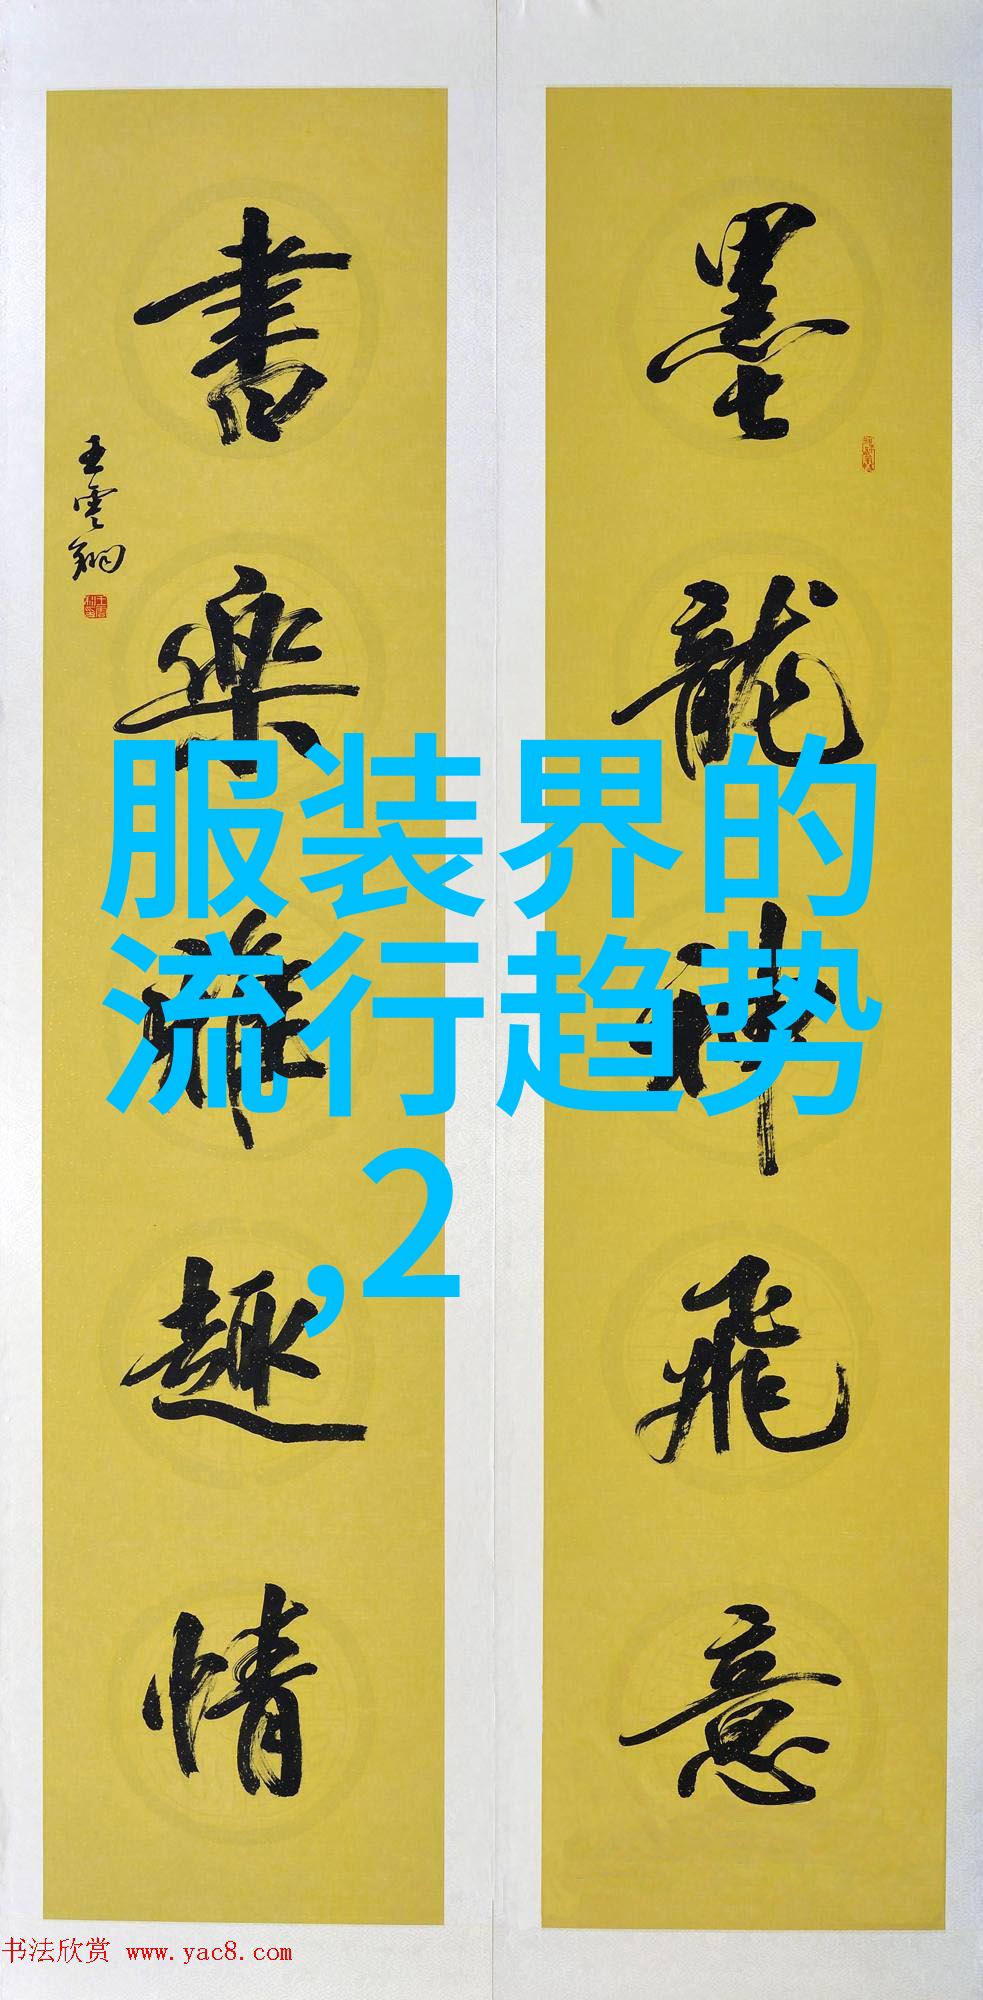 墨龍神飛意
書樂雅趣情
王雲翔
服装界的
流行趋势
,2
书法欣赏 www.yac8.com